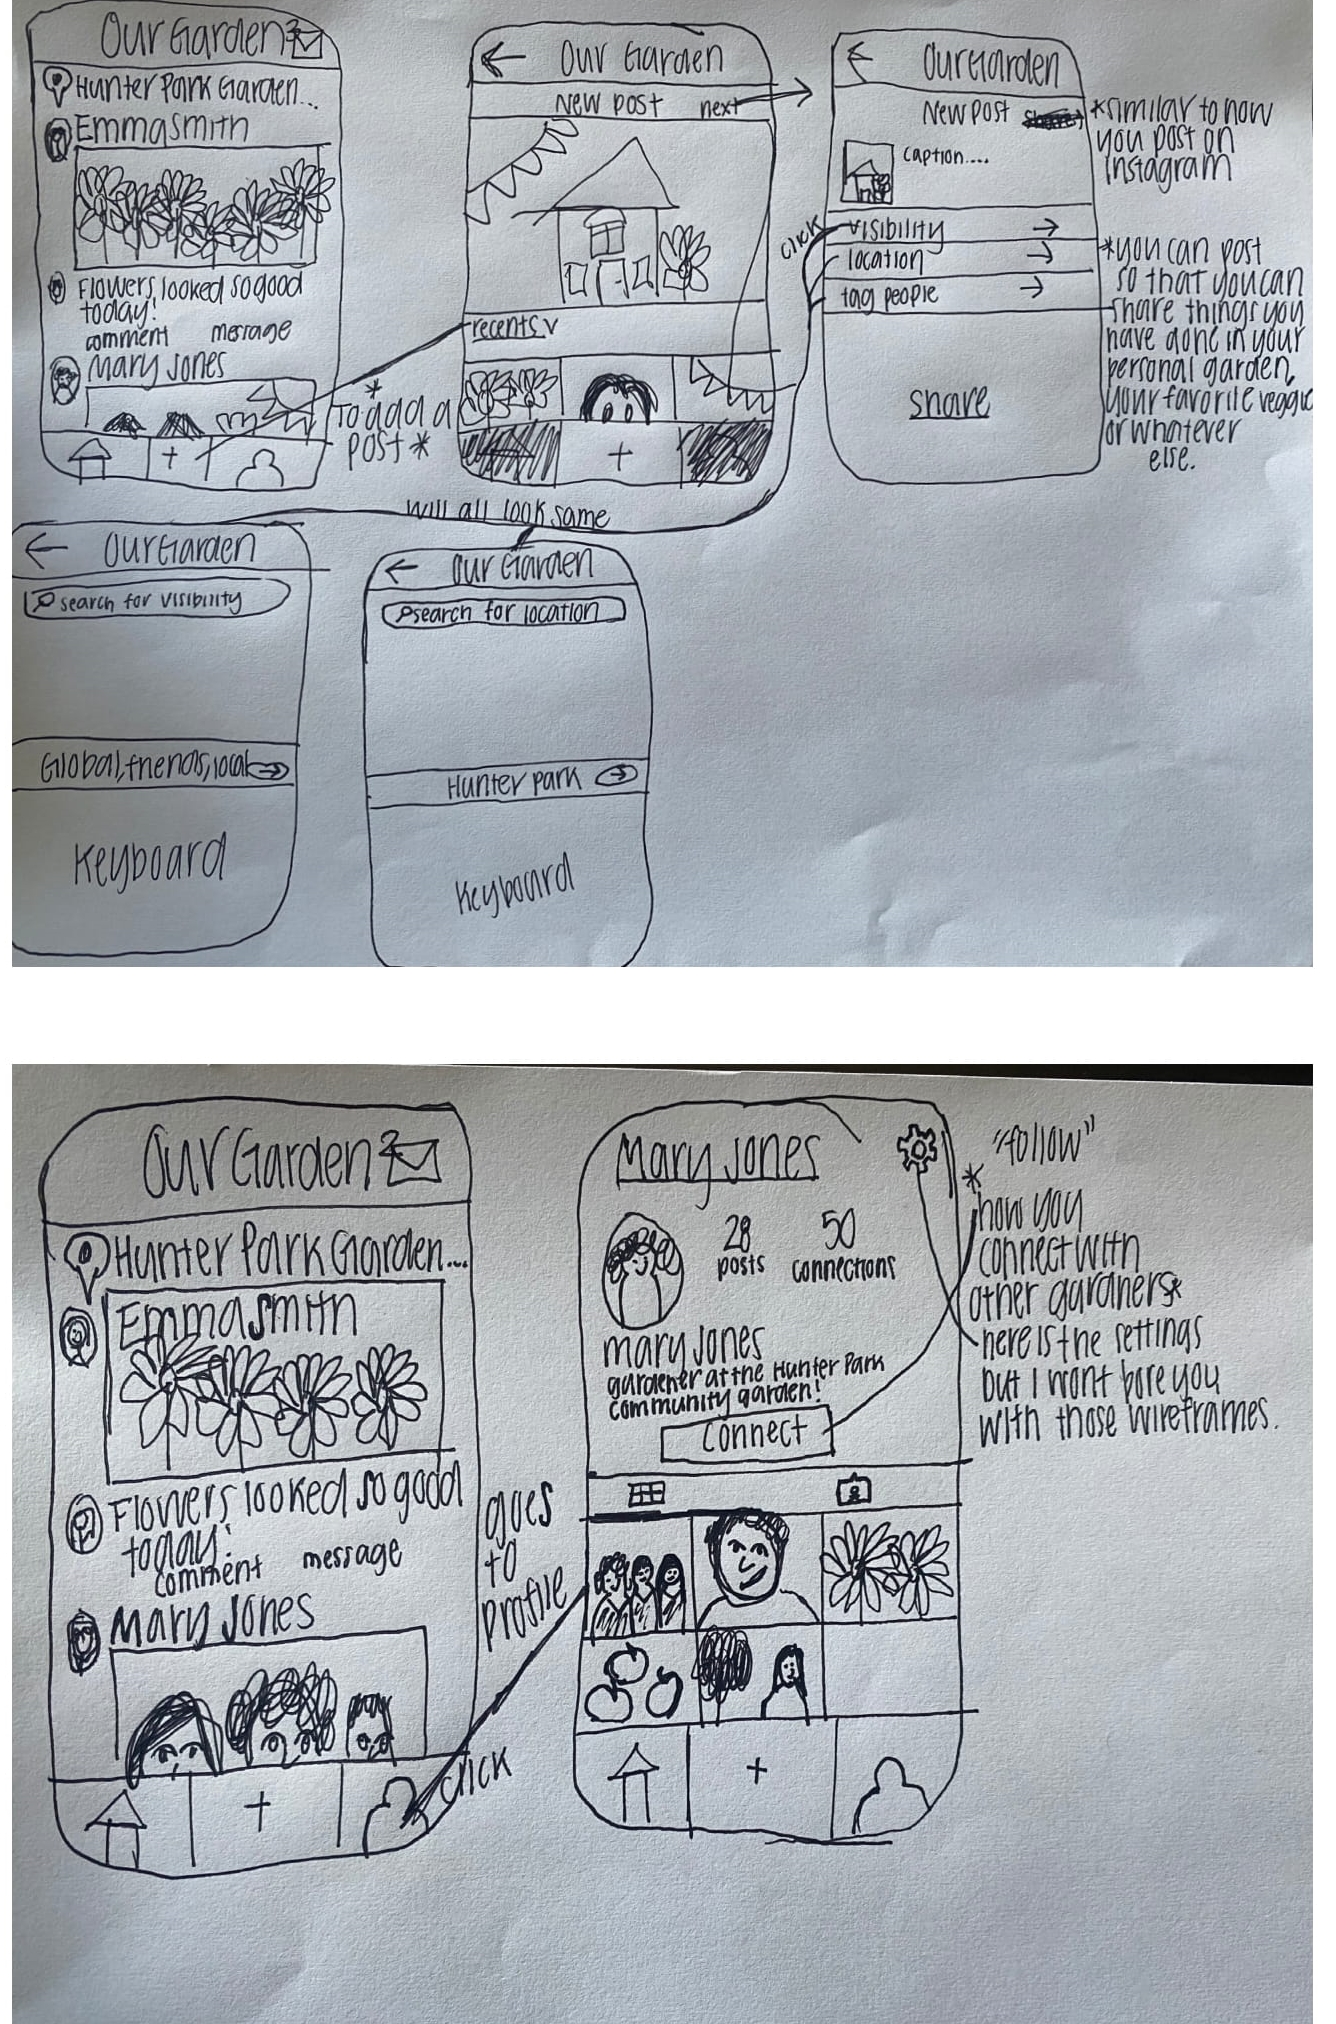 Our Garden
Hunter Park Garden...
Emma Smith
Flowers looked so good
today!
comment message
Mary Jones
+
*
To add a
post *
Our Garden
New post next
recents v
+
Our Garden
New Post
caption....
visibility
location
tag people
share
click
*similar to how
you post on
Instagram
*you can post
so that you can
share things you
have done in your
personal garden,
your favorite veggie
or whatever
else.
will all look same
Our Garden
search for visibility
Global, friends, local
Keyboard
Our Garden
search for location
Hunter Park
Keyboard
Our Garden
Hunter Park Garden...
Emma Smith
Flowers looked so good
today!
comment message
Mary Jones
+
click
goes
to
profile
Mary Jones
28 50
posts connections
mary Jones
gardener at the Hunter Park
community garden!
Connect
+
"follow"
*
how you
connect with
other gardners*
here is the settings
but I wont bore you
with those wireframes.